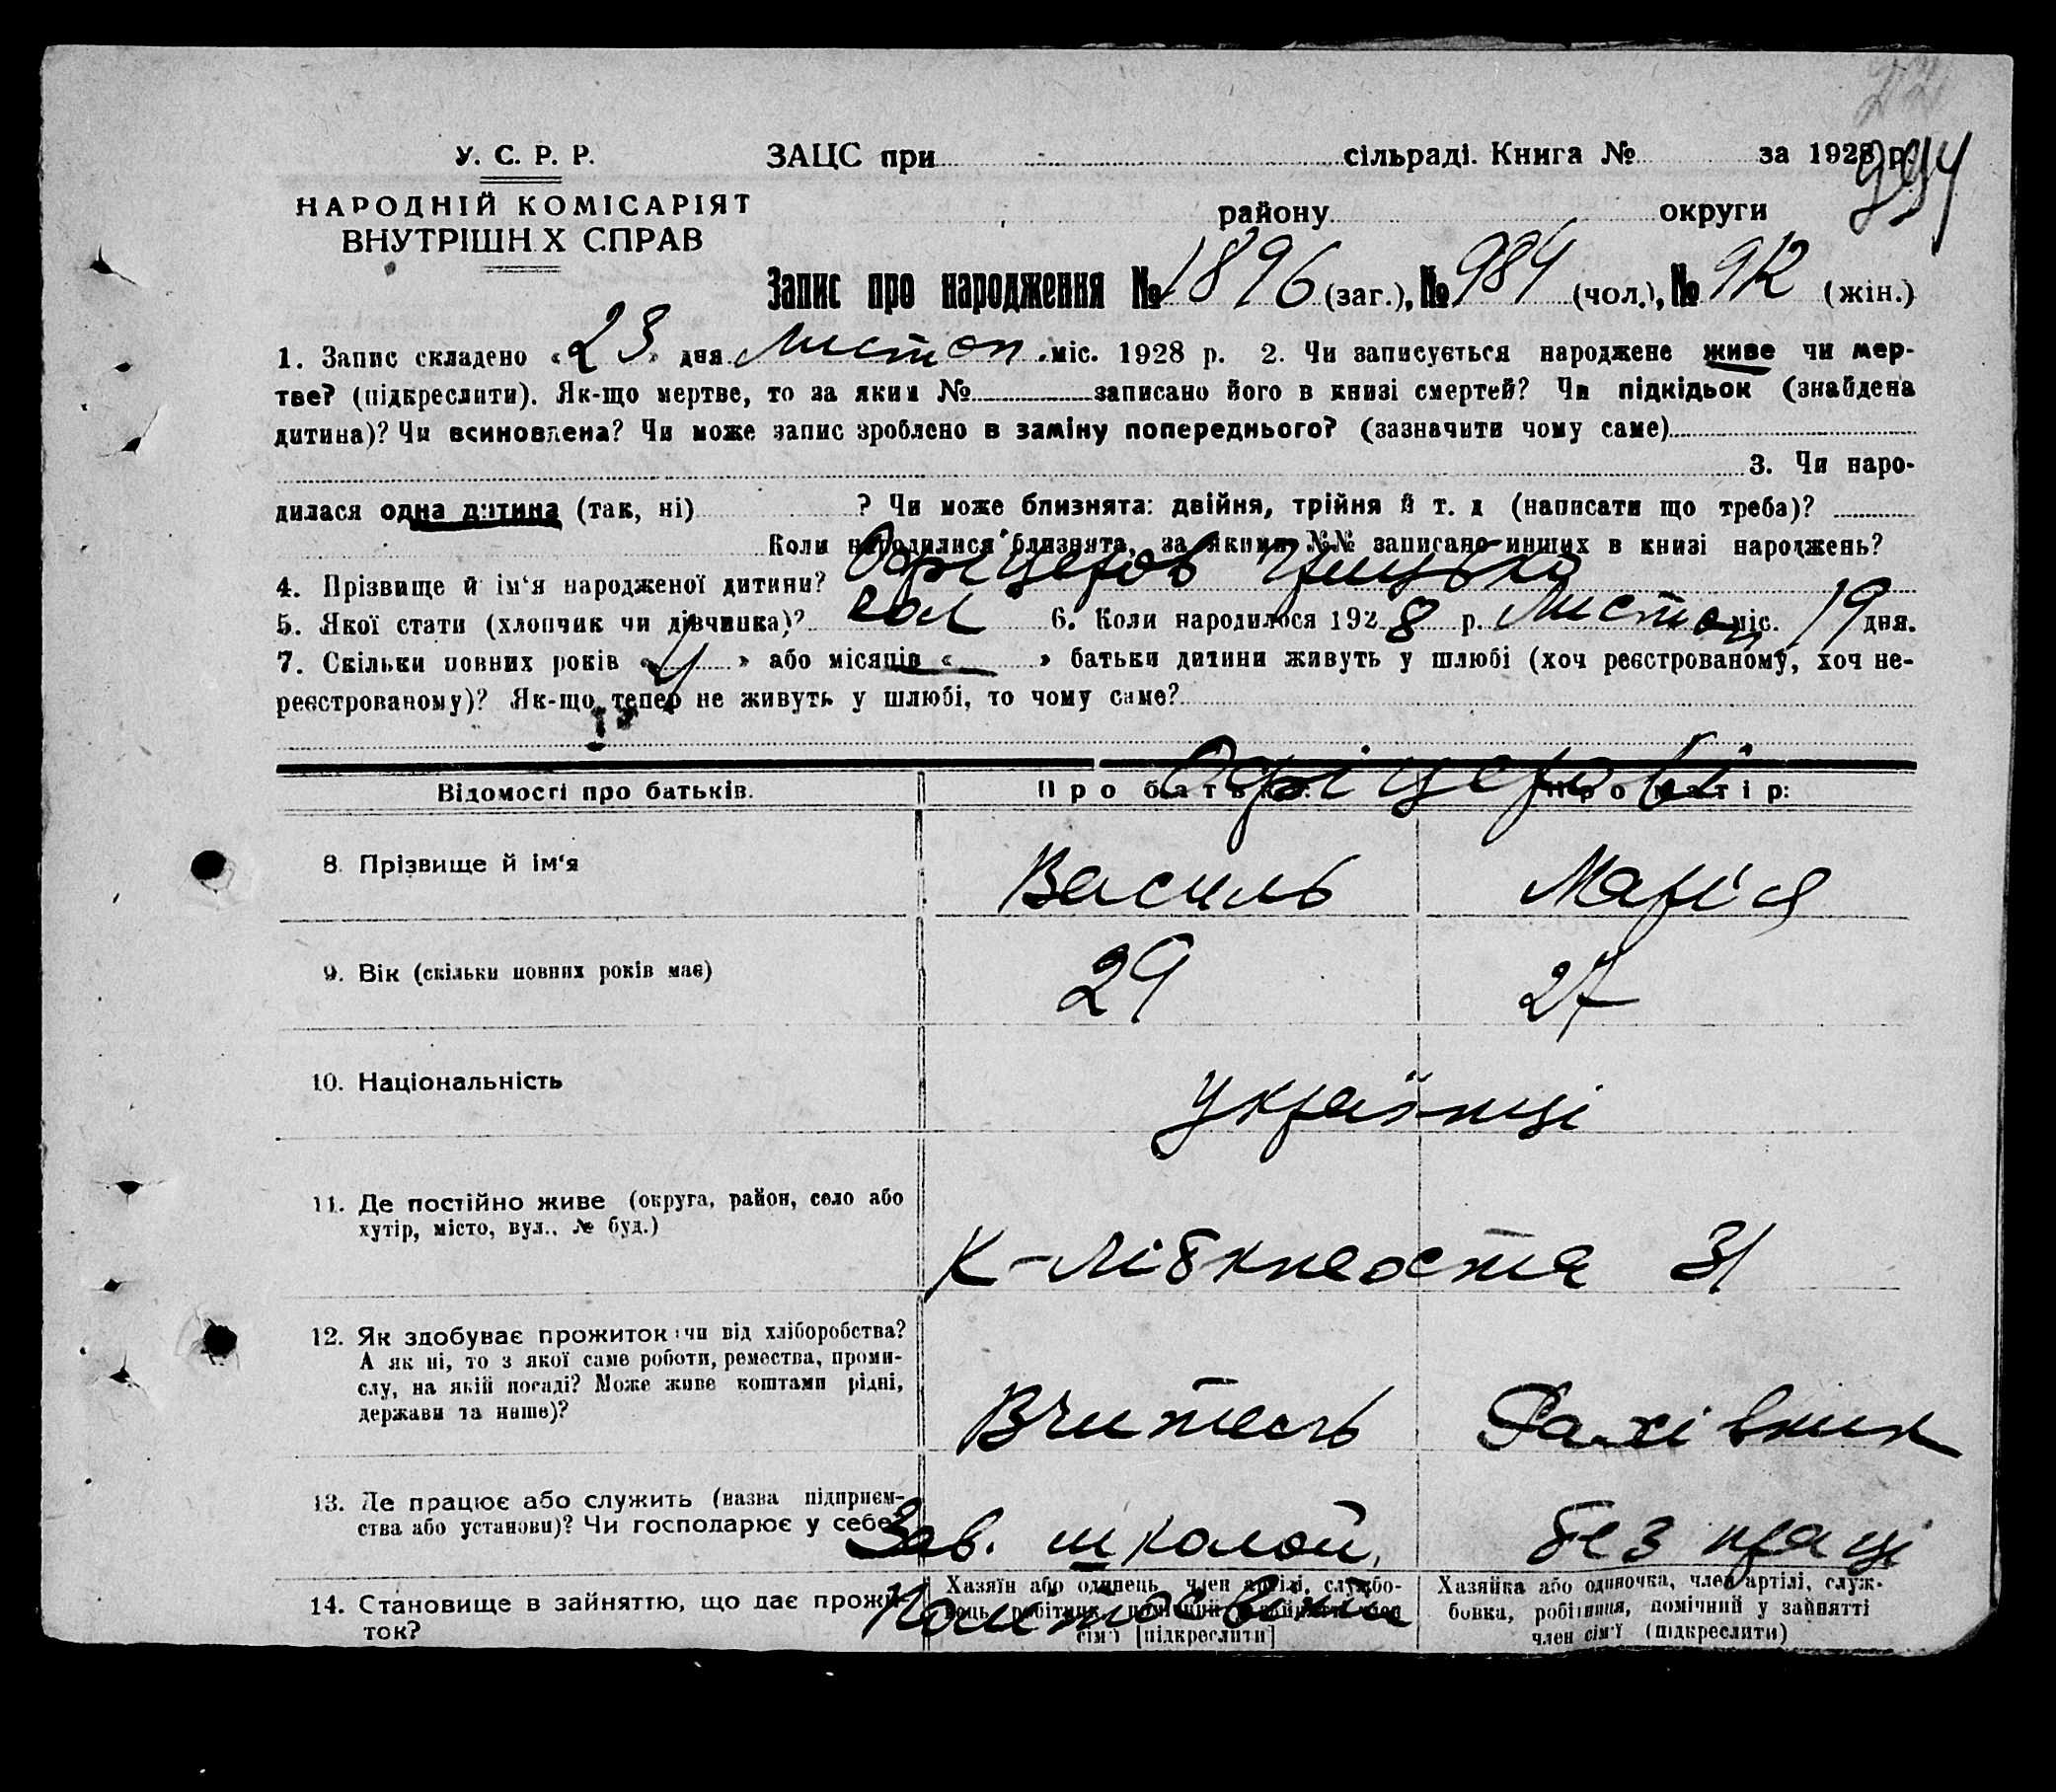 22
994
У. С. Р. Р.
НАРОДНІЙ КОМІСАРІЯТ
ВНУТРІШН Х СПРАВ
ЗАЦС при сільраді. Книга № за 1928 р.
району округи
Запис про народження № 1896 (заг.), № 984 (чол.), № 912 (жін.)
1. Запис складено «23» дня листоп. міс. 1928 р. 2. Чи записується народжене живе чи мер-
тве? (підкреслити). Як-що мертве, то за яким № записано його в книзі смертей? Чи підкідьок (знайдена
дитина)? Чи всиновлена? Чи може запис зроблено в заміну попереднього? (зазначити чому саме)
3. Чи наро-
дилася одна дитина (так, ні) ? Чи може близнята: двійня, трійня й т. д (написати що треба)?
Коли народилися близнята, за якими №№ записано инших в книзі народжень?
4. Прізвище й ім'я народженої дитини? Офіцеров
5. Якої стати (хлопчик чи дівчинка)? чол 6. Коли народилося 1928 р. Листоп міс. 19 дня.
7. Скільки повних років «4» або місяців « — » батьки дитини живуть у шлюбі (хоч реєстрованому, хоч не-
реєстрованому)? Як-що тепер не живуть у шлюбі, то чому саме?
Офіцерові
Відомості про батьків. Про батька: Про матір:
8. Прізвище й ім'я Василь Марія
9. Вік (скільки повних років має) 29 27
10. Національність українці
11. Де постійно живе (округа, район, село або
хутір, місто, вул., № буд.)
К-Лібкнехта 31
12. Як здобуває прожиток: чи від хліборобства?
А як ні, то з якої саме роботи, ремества, проми-
слу, на якій посаді? Може живе коштами рідні,
держави та инше)?
Вчитель Рахівник
13. Де працює або служить (назва підприєм-
ства або установи)? Чи господарює у себе?
Зав. школой, без праці
14. Становище в зайняттю, що дає прожи-
ток?
Хазяїн або одинець, член артілі, службо-
вець, робітник, помічний у зайнятті член
сім'ї [підкреслити]
Хазяйка або одиночка, член артілі, служ-
бовка, робітниця, помічний у зайнятті
член сім'ї (підкреслити)